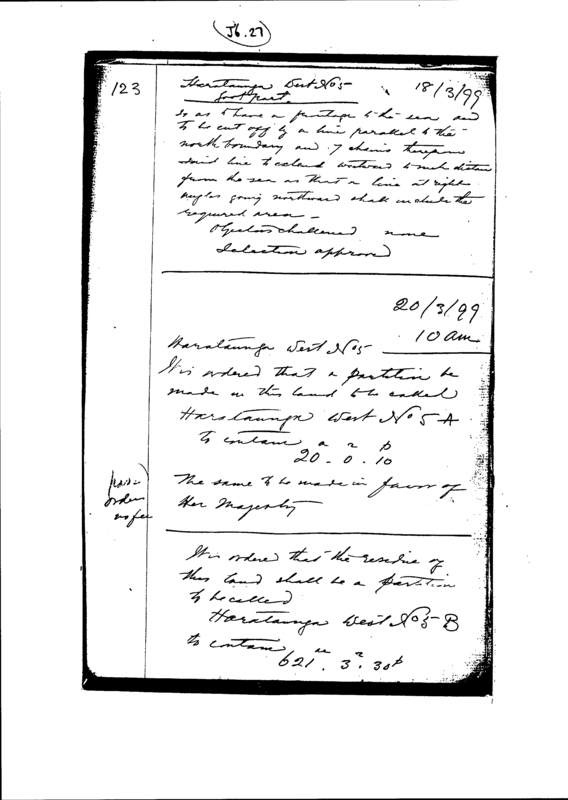 J6.27
123
Harataunga West No 5 18/3/99
so as to have a frontage to the sea and
to be cut off by a line parallel to the
north boundary and 7 chains therefrom
said line to extend westward to such distance
from the sea as that a line at right
angles going northward shall include the
required area -
Objectors challenged none
Selection approved
20/3/99
10 am
Harataunga West No 5
It is ordered that a partition be
made in this land to be called
Harataunga West No 5 A
to contain a r p
20 - 0 - 10
The same to be made in favor of
Her Majesty
order
no fee
It is ordered that the residue of
this land shall be a partition
to be called
Harataunga West No 5 B
to contain
621 a 3 r 30 p